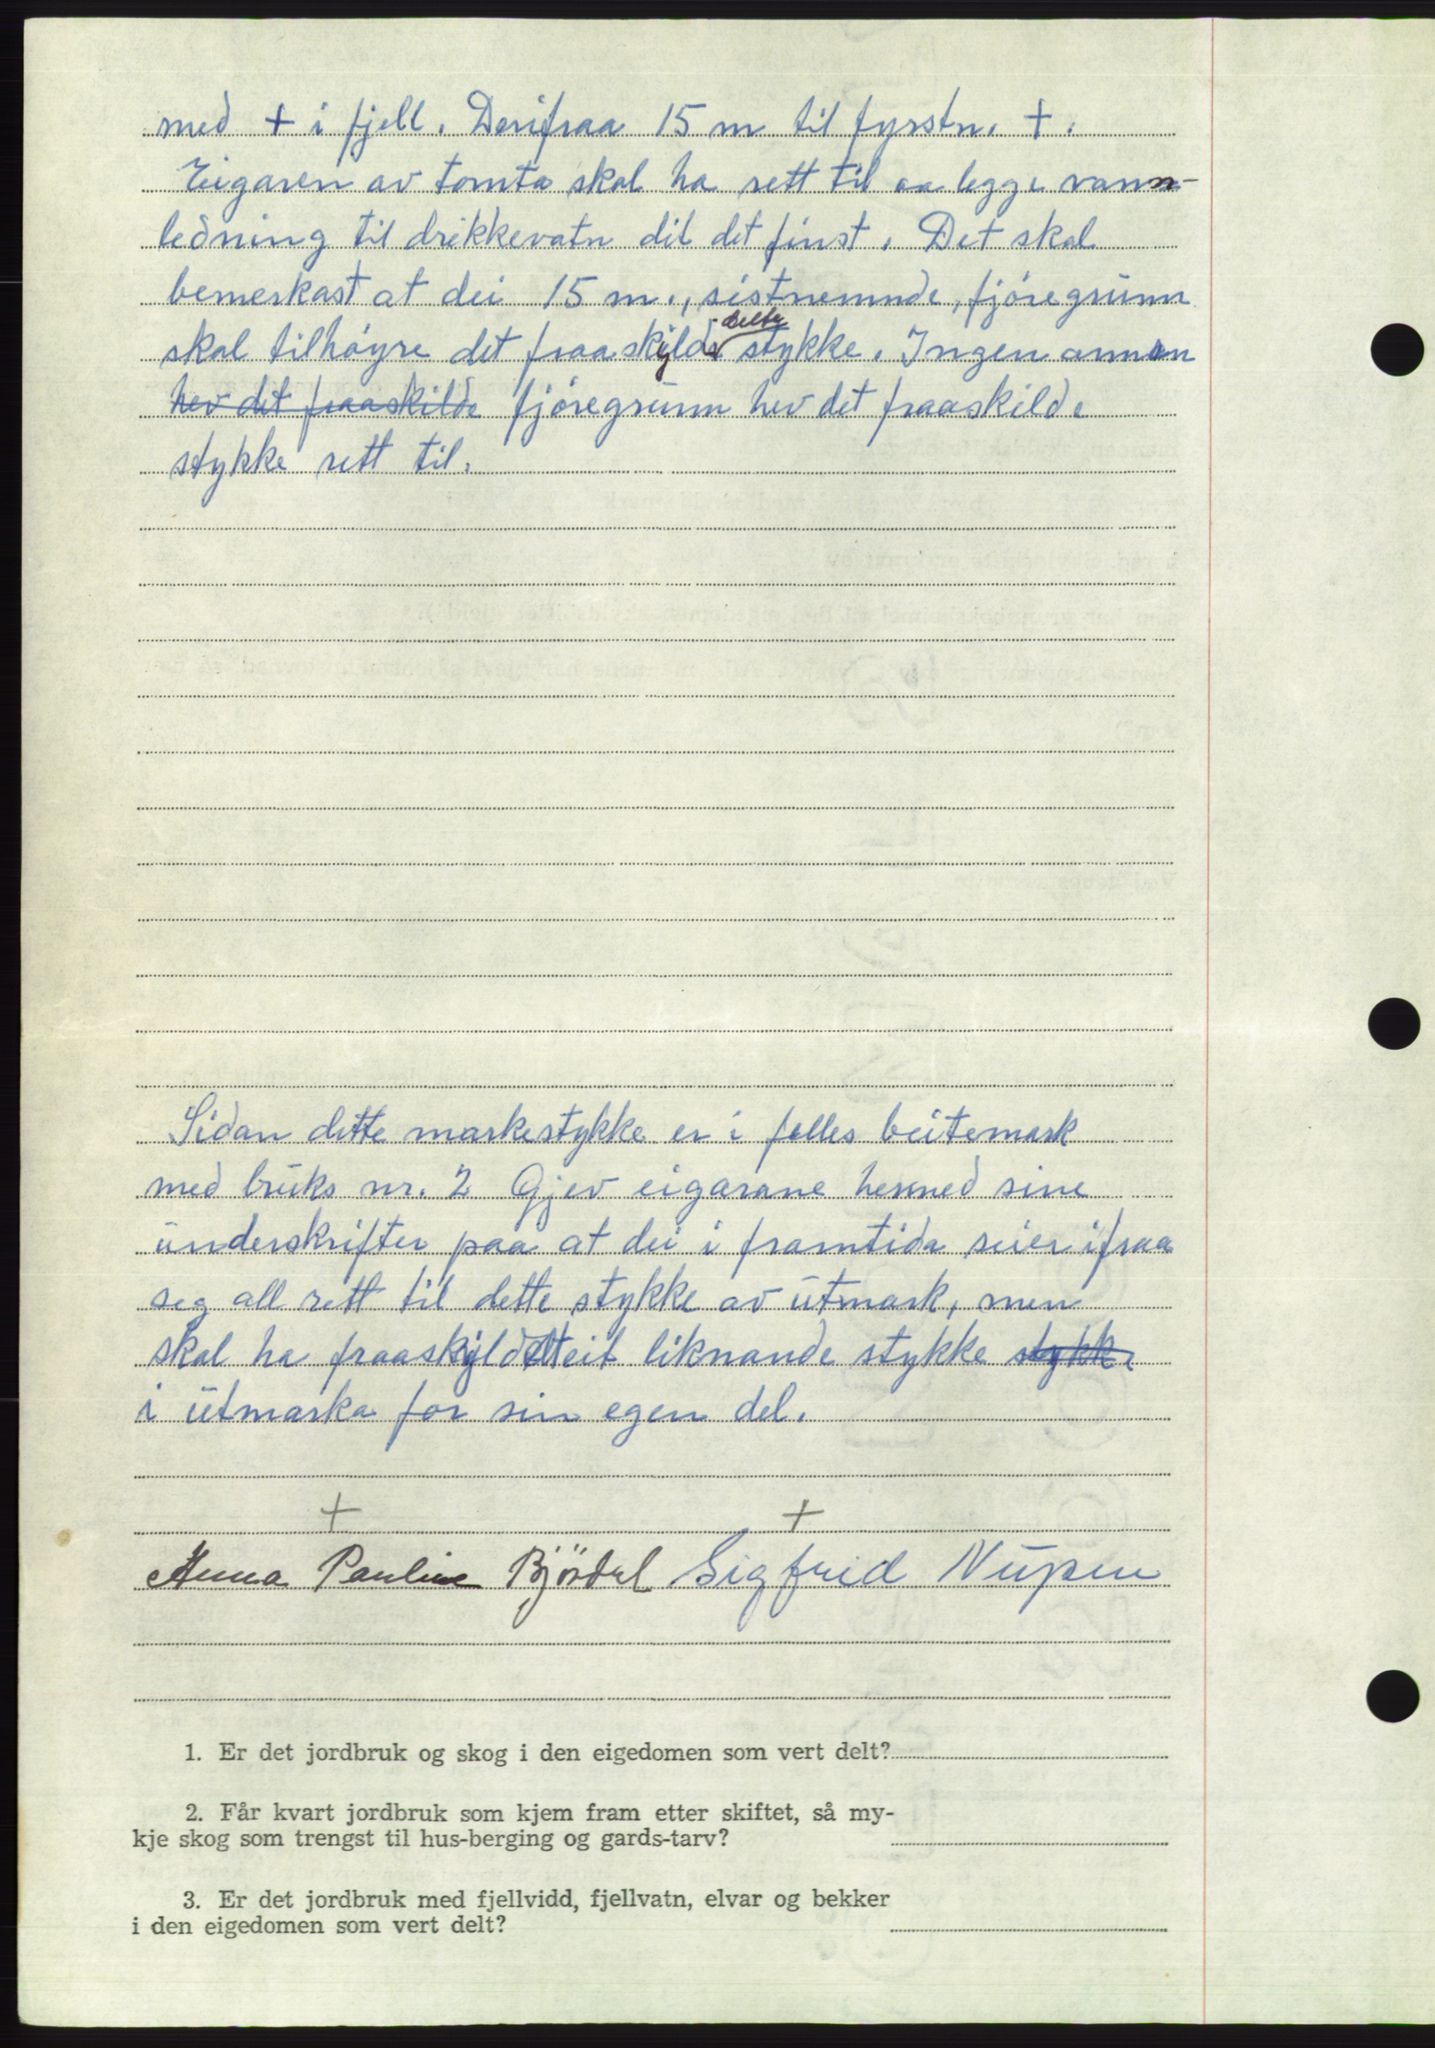 med + i fjell. Derifraa 15 m til fyrstn. +.
Eigaren av tomta skal ha rett til aa legge vann-
ledning til drikkevatn dit det finst. Det skal
bemerkast at dei 15 m., sistnemnde, fjøregrunn
skal tilhøyre det fraaskylde delte stykke. Ingen annen
hev det fraaskilde fjøregrunn hev det fraaskilde
stykke rett til.
Sidan dette markestykke er i felles beitemark
med bruks nr. 2 Gjev eigarane hermed sine
underskrifter paa at dei i framtida seier ifraa
seg all rett til dette stykke av utmark, men
skal ha fraaskyldt eit liknande stykke stykke
i utmarka for sin egen del.
+ +
Anna Pauline Bjørdal Sigfrid Nupen
1. Er det jordbruk og skog i den eigedomen som vert delt?
2. Får kvart jordbruk som kjem fram etter skiftet, så my-
kje skog som trengst til hus-berging og gards-tarv?
3. Er det jordbruk med fjellvidd, fjellvatn, elvar og bekker
i den eigedomen som vert delt?